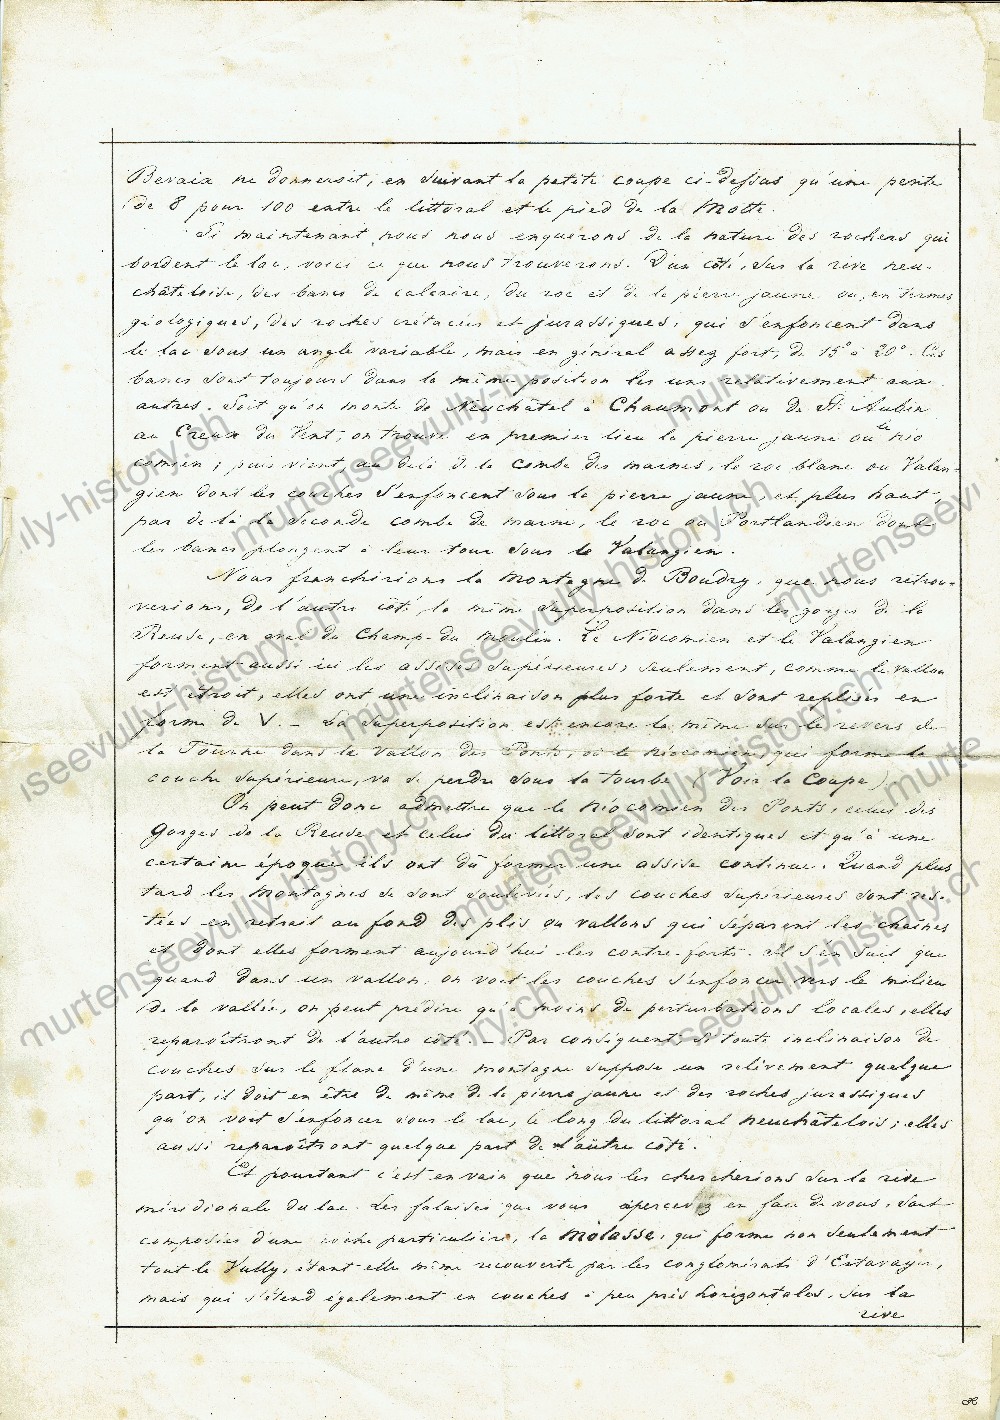 Bevaix ne donneroit, en suivant la petite coupe ci-dessus qu'une pente
de 8 pour 100 entre le littoral et le pied de la Motte.
Si maintenant nous nous enquérons de la nature des rochers qui
bordent le lac, voici ce que nous trouverons. D'un côté, sur la rive neu-
châteloise, des bancs de calcaire, du roc et de la pierre jaune ou, en termes
géologiques, des roches crétacées et jurassiques, qui s'enfoncent dans
le lac sous un angle variable, mais en général assez fort, de 15° à 20°. Ces
bancs sont toujours dans la même position les uns relativement aux
autres. Soit qu'on monte de Neuchâtel à Chaumont ou de St. Aubin
au Creux du Vent, on trouve en premier lieu la pierre jaune ou le néo
comien; puis vient, au delà de la combe des marnes, le roc blanc ou Valan-
gien dont les couches s'enfoncent sous la pierre jaune, et plus haut,
par de là la seconde combe de marne, le roc ou Portlandien dont
les bancs plongent à leur tour sous le Valangien.
Nous franchirions la montagne de Boudry, que nous retrou-
verions, de l'autre côté la même superposition dans les gorges de la
Reuse, en aval du Champ-du Moulin. Le Néocomien et le Valangien
forment aussi ici les assises supérieures, seulement, comme le vallon
est étroit, elles ont une inclinaison plus forte et sont repliées en
forme de V. – La superposition est encore la même sur le revers de
la Tourne dans le vallon des Ponts, où le néocomien qui forme la
couche supérieure, va se perdre sous la tourbe (Voir la Coupe)
On peut donc admettre que le néocomien des Ponts, celui des
Gorges de la Reuse et celui du littoral sont identiques et qu'à une
certaine époque ils ont dû former une assise continue. Quand plus
tard les montagnes se sont soulevées, les couches supérieures sont res-
tées en retrait au fond des plis ou vallons qui séparent les chaînes
et dont elles forment aujourd'hui les contre-forts. Il s'en suit que
quand dans un vallon, on voit les couches s'enfoncer vers le milieu
de la vallée, on peut prédire qu'à moins de perturbations locales, elles
reparaîtront de l'autre côté. – Par conséquent, si toute inclinaison de
couches sur le flanc d'une montagne suppose un relèvement quelque
part, il doit en être de même de la pierre jaune et des roches jurassiques
qu'on voit s'enfoncer sous le lac, le long du littoral neuchâtelois; elles
aussi reparaîtront quelque part de l'autre côté.
Et pourtant c'est en vain que nous les chercherions sur la rive
méridionale du lac. Les falaises que vous apercevez en face de vous, sont
composées d'une roche particulière, la Molasse, qui forme non seulement
tout le Vully, étant elle même recouverte par les conglomérats d'Estavayer,
mais qui s'étend également en couches à peu près horizontales, sur la
rive